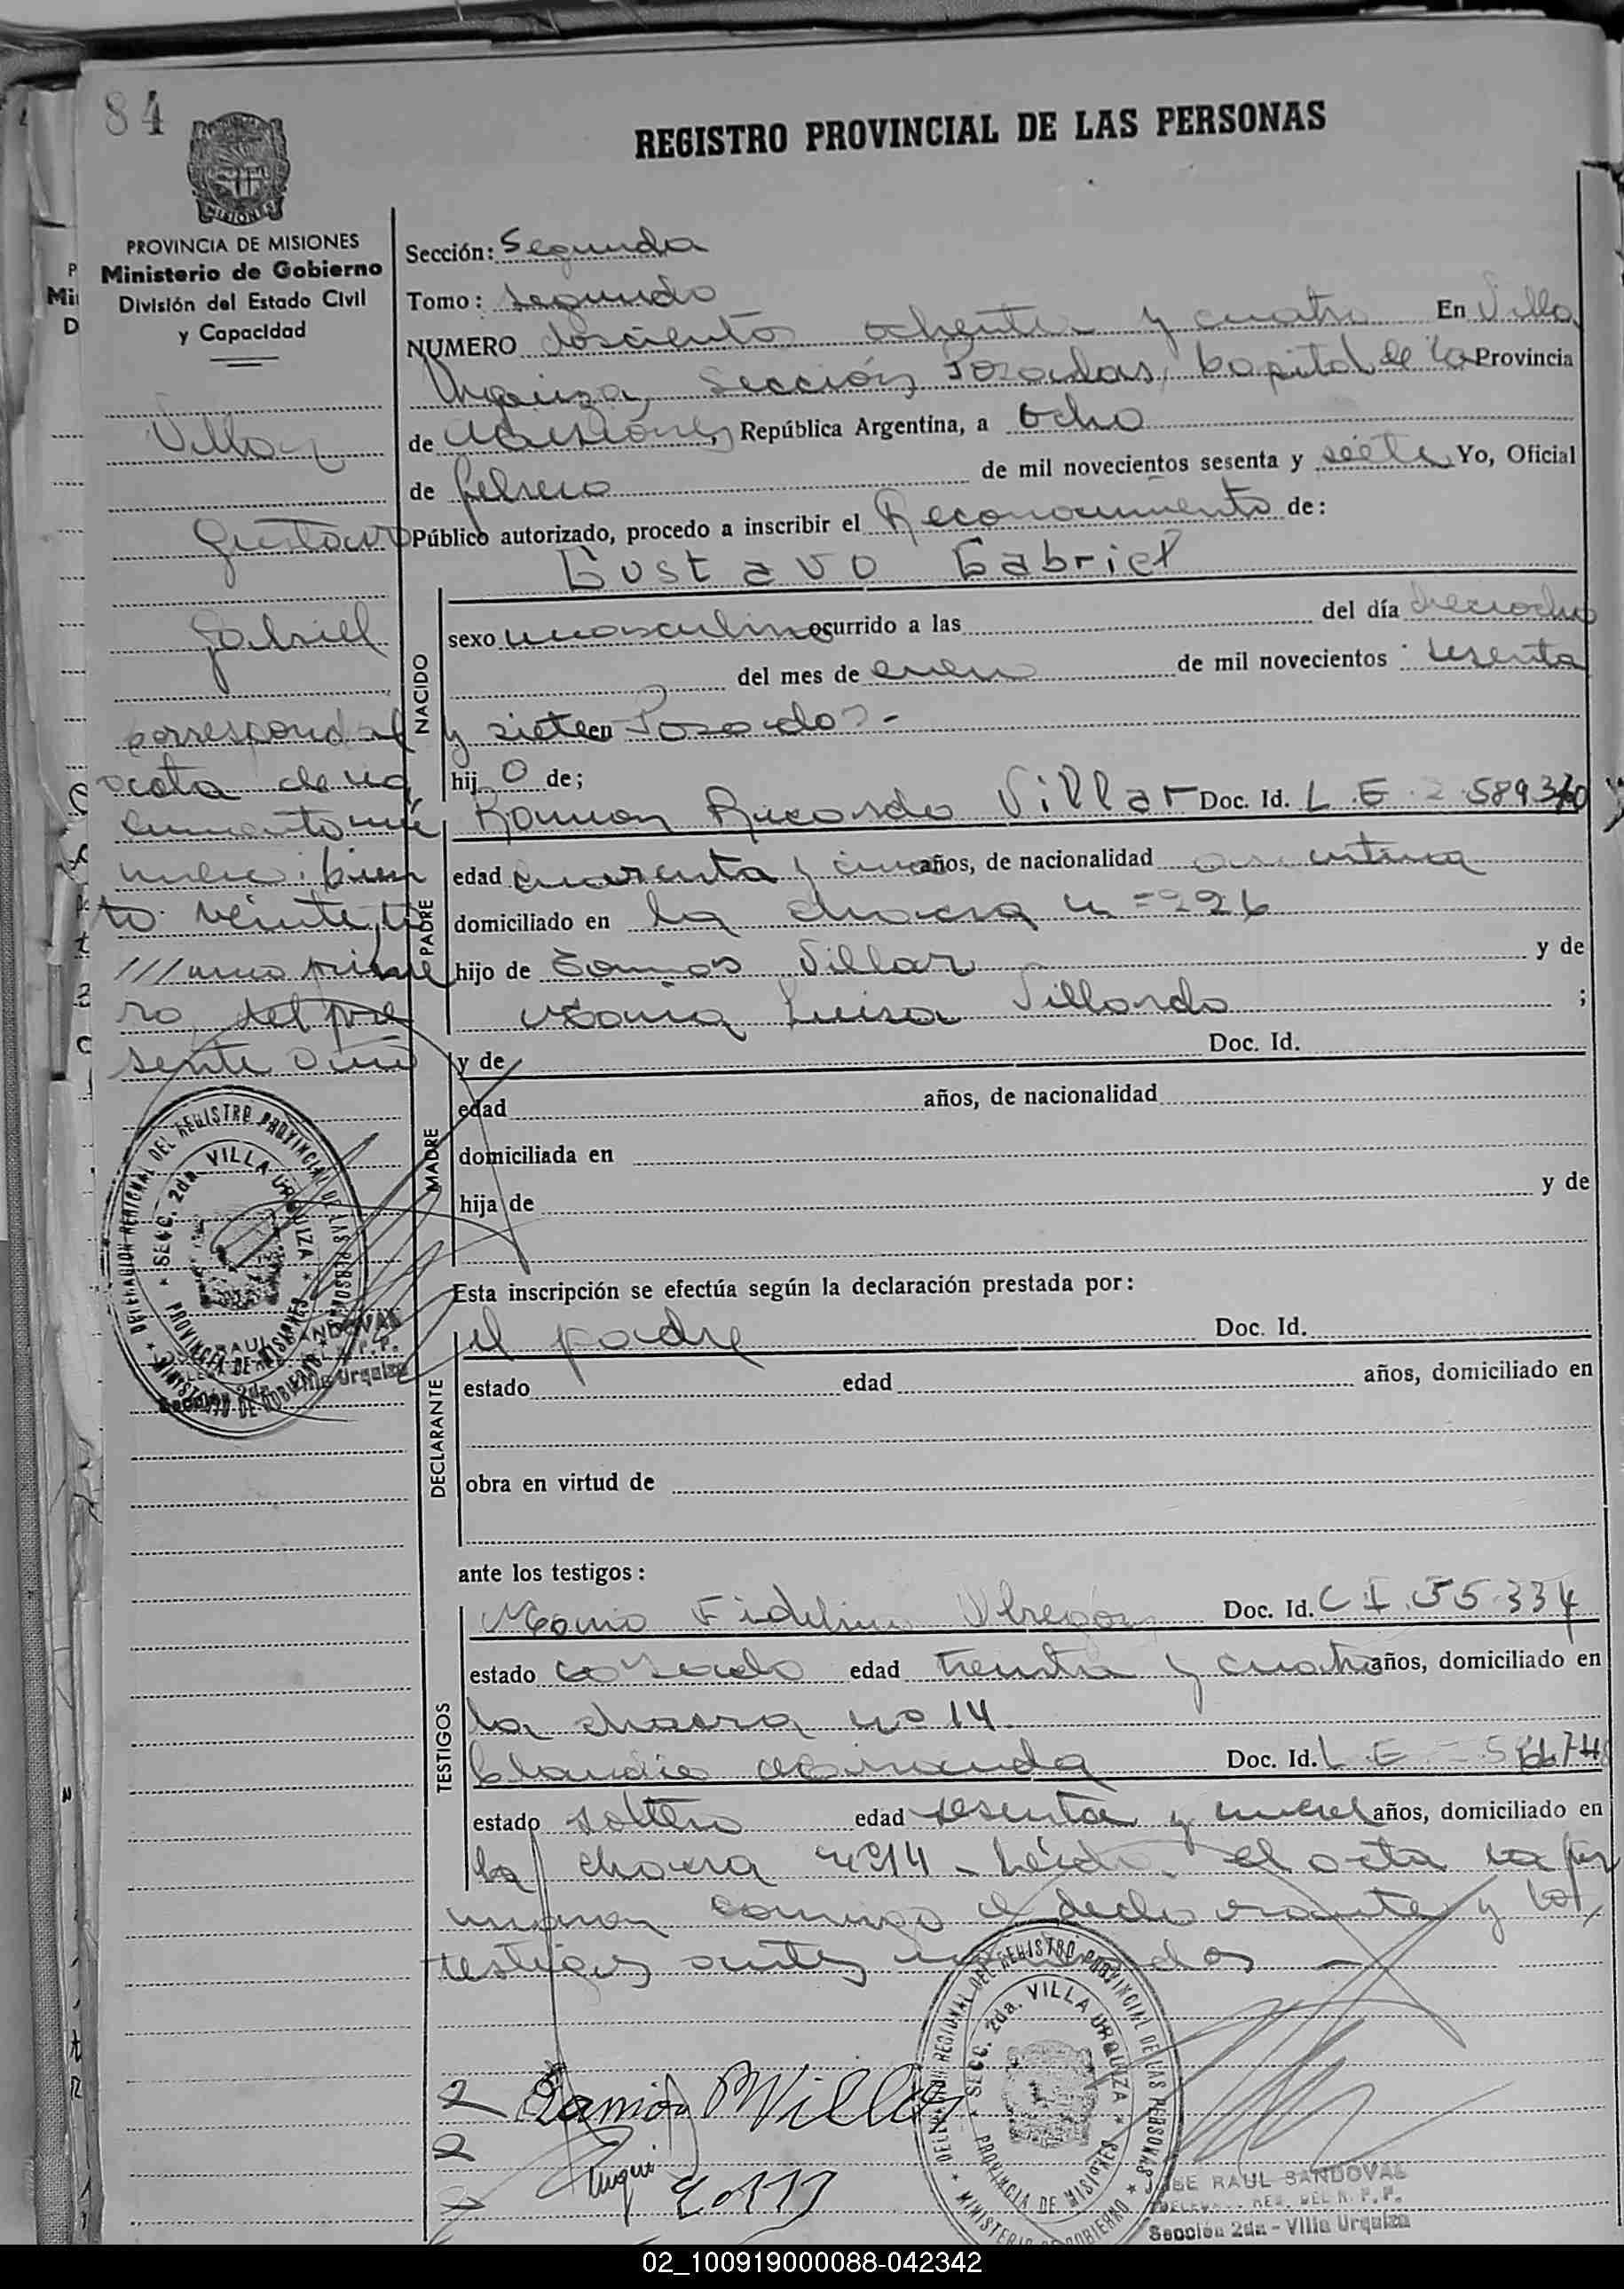 84
REGISTRO PROVINCIAL DE LAS PERSONAS
MISIONES
PROVINCIA DE MISIONES
Ministerio de Gobierno
División del Estado Civil
y Capacidad
Villar
Gustavo
Gabriel
correspond al
acta de na
cimiento nú
mero: cien
to veinte,
/// primero
ro, del pre
sente
Sección: Segunda
Tomo: Segundo
NUMERO doscientos ochenta y cuatro En Villa
Urquiza, Sección Posadas, Capital de la Provincia
de Misiones, República Argentina, a ocho
de febrero de mil novecientos sesenta y siete Yo, Oficial
Público autorizado, procedo a inscribir el Reconocimiento de:
Gustavo Gabriel
NACIDO
sexo masculino ocurrido a las del día dieciocho
del mes de enero de mil novecientos sesenta
y siete en Posadas.-
hijo de;
PADRE
Ramon Ricardo Villar Doc. Id. L.E. 2.589
edad cuarenta y años, de nacionalidad argentina
domiciliado en la chacra n=226
hijo de Villar y de
Luisa Villordo ;
MADRE
y de Doc. Id.
edad años, de nacionalidad
domiciliada en
hija de y de
Esta inscripción se efectúa según la declaración prestada por:
DECLARANTE
el padre Doc. Id.
estado edad años, domiciliado en
obra en virtud de
ante los testigos:
TESTIGOS
Doc. Id. C I. 55.334
estado casado edad treinta y cuatro años, domiciliado en
la chacra nº 14.
Claudio Miranda Doc. Id. L E
estado soltero edad sesenta y años, domiciliado en
la chacra nº 14 - Leída el acta la fir
man conmigo el declarante y los
testigos antes
Ramón R Villar
DELEGACION REGIONAL DEL REGISTRO PROVINCIAL DE LAS PERSONAS
SECC. 2da. VILLA URQUIZA
PROVINCIA DE MISIONES
MINISTERIO DE GOBIERNO
RAUL SANDOVAL
Sección 2da - Villa Urquiza
DELEGACION REGIONAL DEL REGISTRO PROVINCIAL DE LAS PERSONAS
SECC. 2da. VILLA URQUIZA
PROVINCIA DE MISIONES
MINISTERIO DE GOBIERNO
JOSE RAUL SANDOVAL
DELEGA.. REG. DEL R. P. P.
Sección 2da - Villa Urquiza
02_100919000088-042342